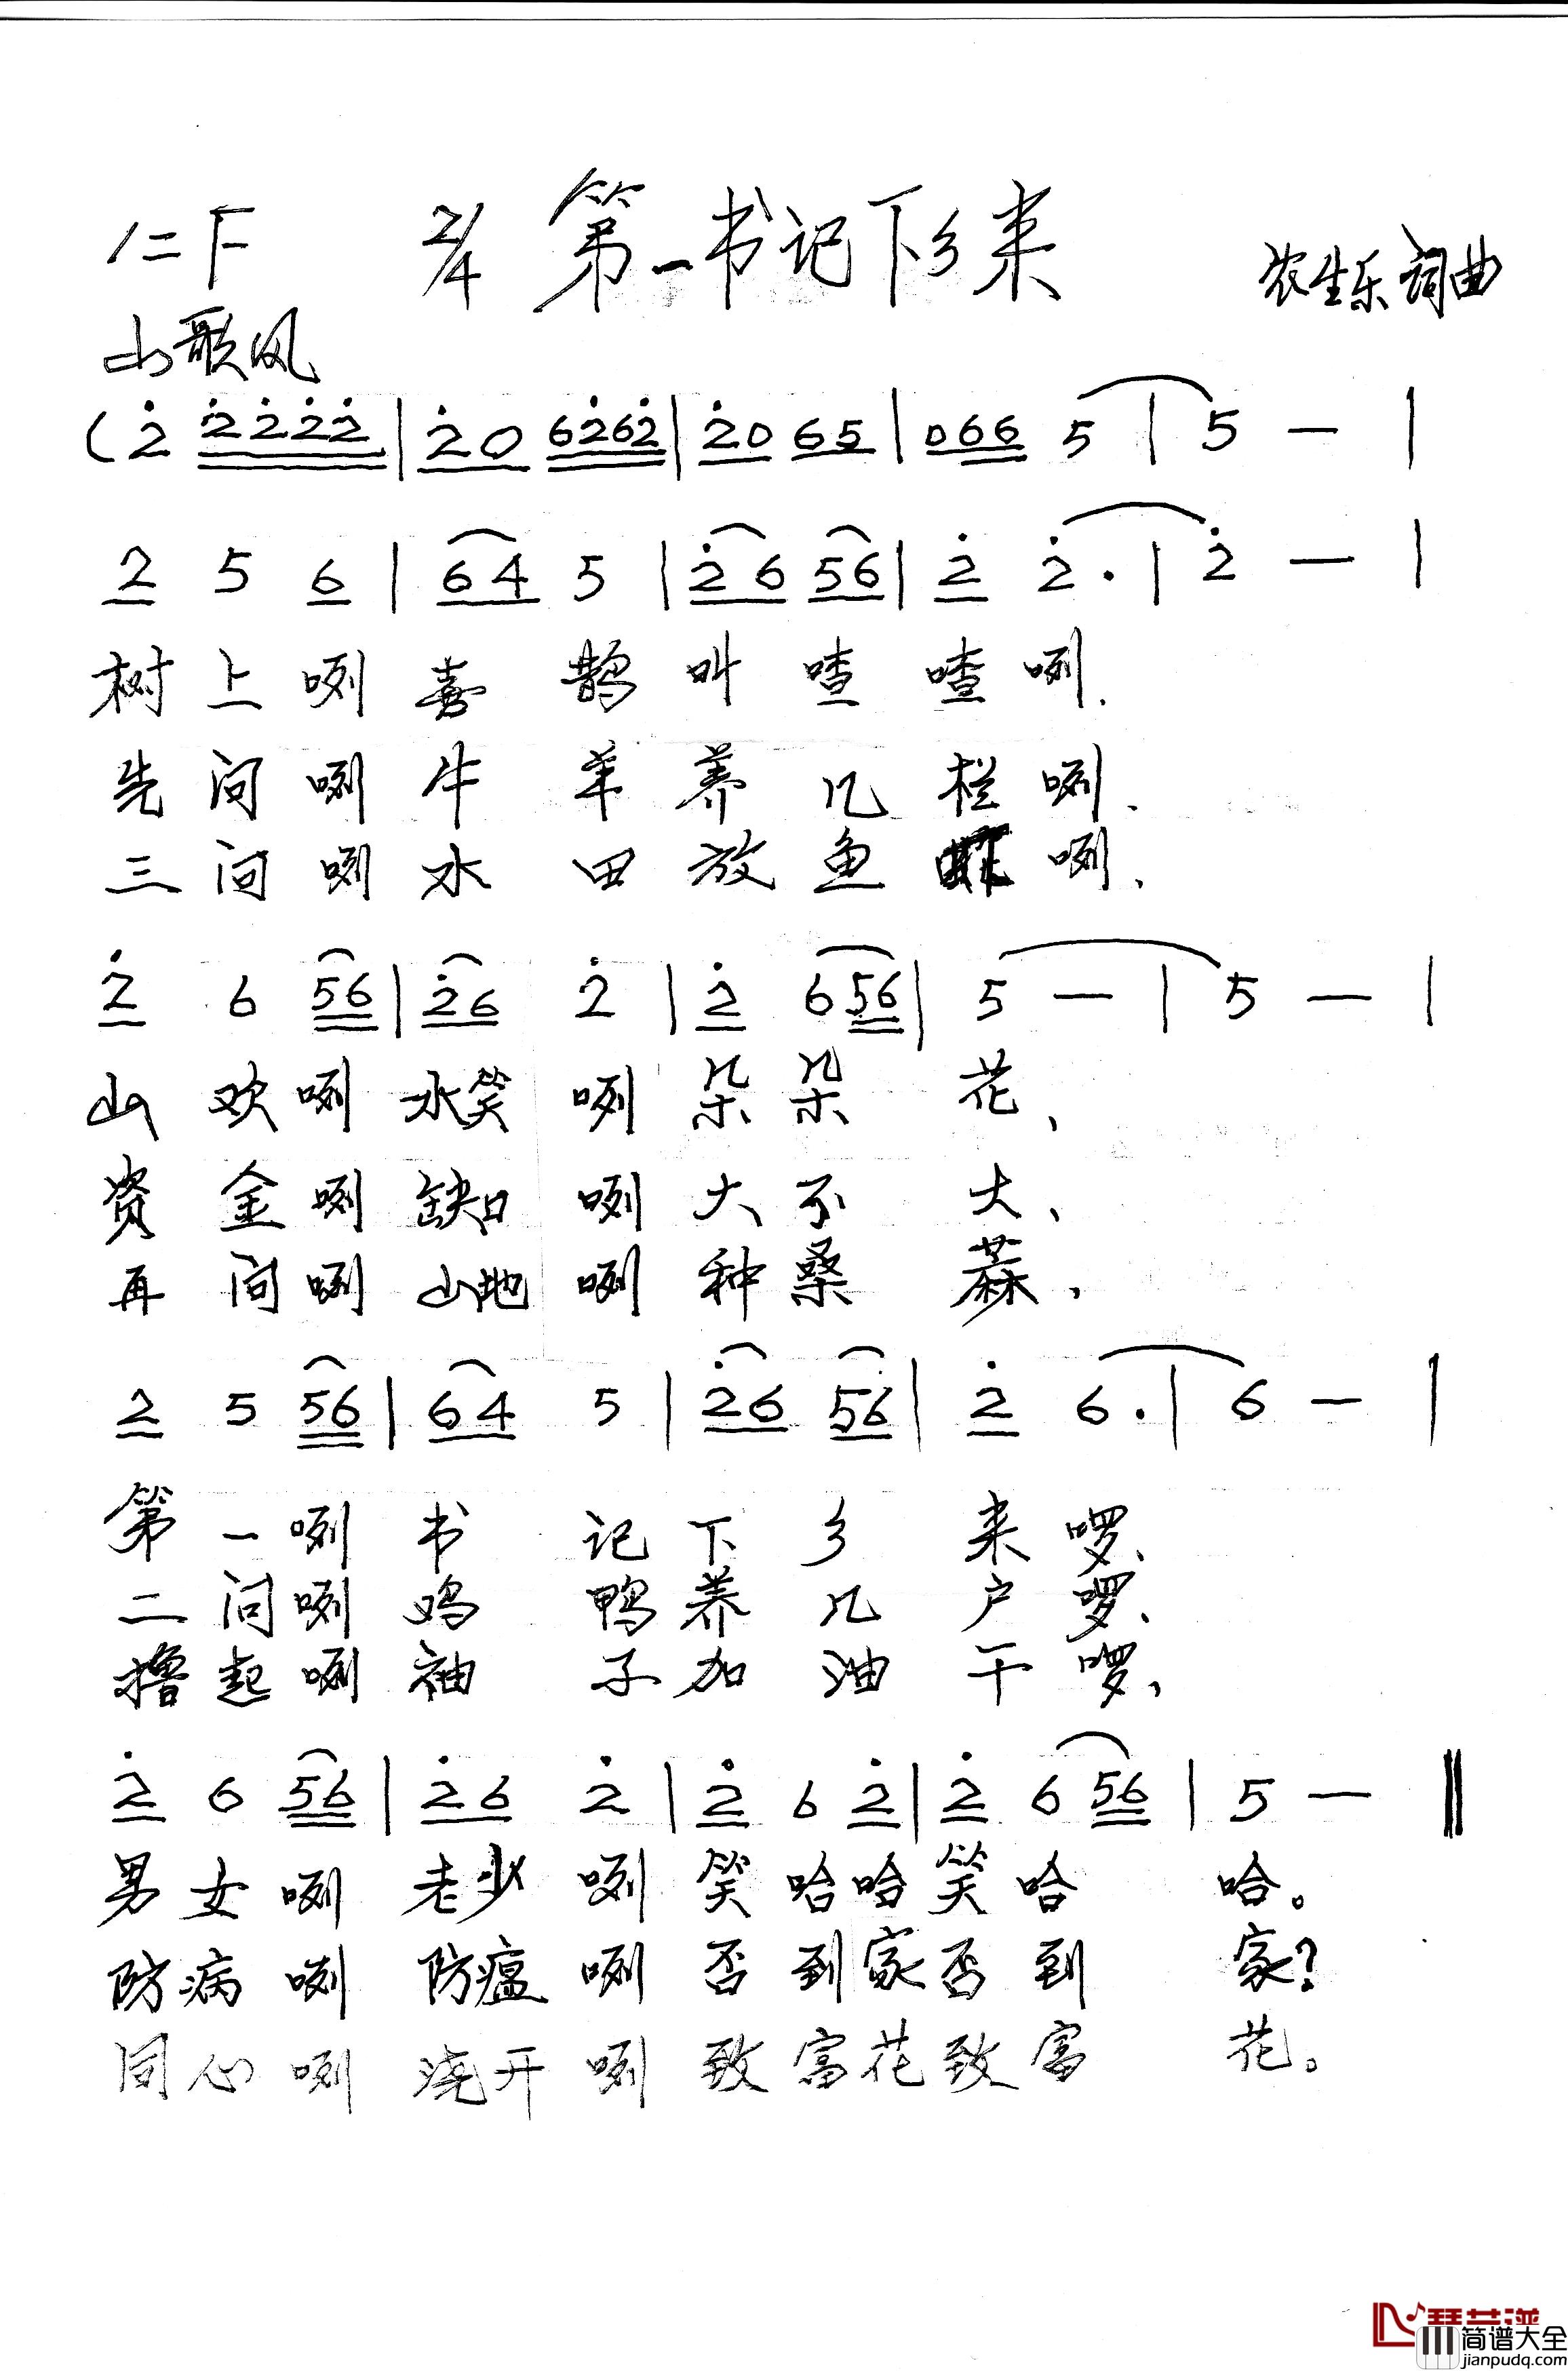 1=F 2/4 第一书记下乡来
农生乐 词曲
山歌风
(2̇ 2̇2̇2̇2̇ | 2̇0 62̇62̇ | 2̇0 65 | 066 5 | 5 — |
2 5 6 | 64 5 | 2̇6 56 | 2̇ 2̇. | 2̇ — |
树上咧喜鹊叫喳喳咧、
先问咧牛羊养几栏咧、
三问咧水田放鱼咧、
2̇ 6 56 | 2̇6 2̇ | 2̇ 656 | 5 — | 5 — |
山欢咧水笑咧朵朵花、
资金咧缺口咧大不大、
再问咧山地咧种桑蔴、
2 5 56 | 64 5 | 2̇6 56 | 2̇ 6. | 6 — |
第一咧书记下乡来啰、
二问咧鸡鸭养几户啰、
撸起咧袖子加油干啰、
2̇ 6 56 | 2̇6 2̇ | 2̇ 6 2̇ | 2̇ 6 56 | 5 — ‖
男女咧老少咧笑哈哈笑哈哈。
防病咧防瘟咧否到家否到家?
同心咧浇开咧致富花致富花。
简谱大全
jianpudq.com